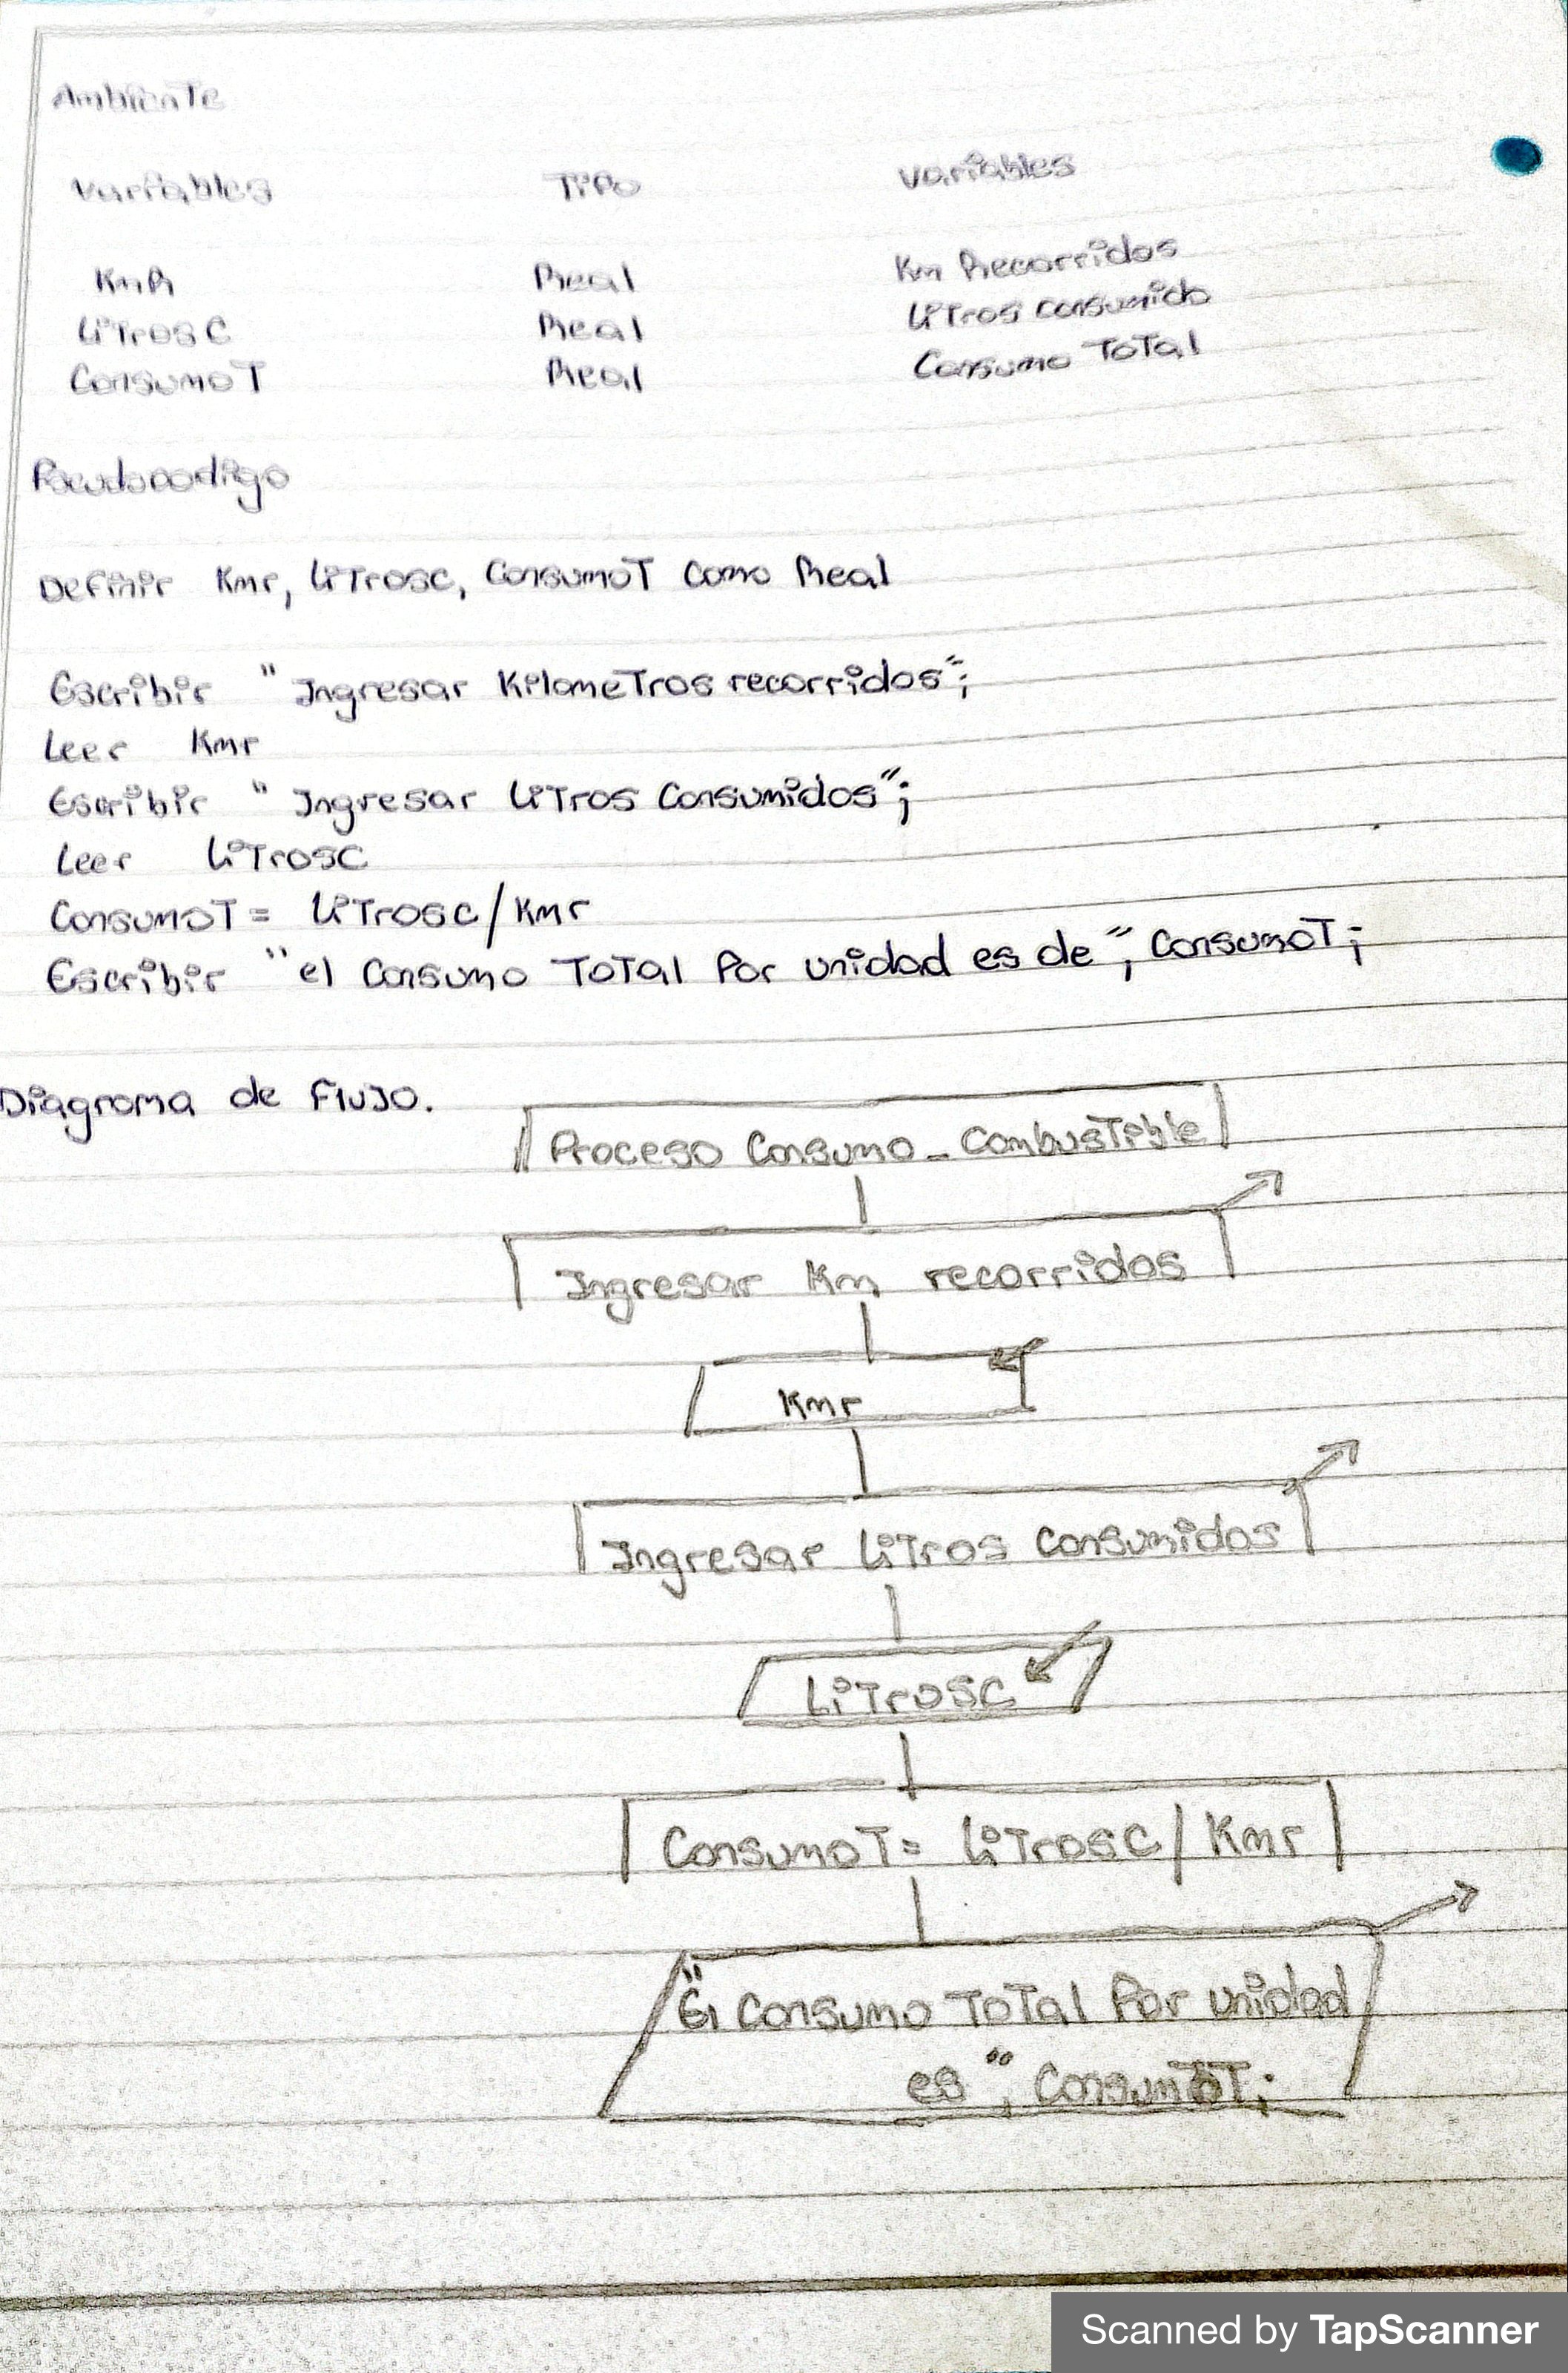 Ambiente
Variables Tipo variables
KmR Real Km Recorridos
LiTros C Real LiTros consumido
ConsumoT Real Consumo ToTal
Pseudocodigo
Definir Kmr, LiTrosc, ConsumoT como Real
Escribir "Ingresar KilomeTros recorridos";
Leer Kmr
Escribir "Ingresar LiTros Consumidos";
Leer LiTrosC
ConsumoT = LiTrosc/Kmr
Escribir "el Consumo ToTal Por unidad es de", ConsumoT;
Diagrama de FluJo.
Proceso Consumo_CombusTible
Ingresar Km recorridos
Kmr
Ingresar LiTros Consumidos
LiTrosC
ConsumoT = LiTrosC/Kmr
"El Consumo ToTal Por unidad
es", ConsumoT;
Scanned by TapScanner